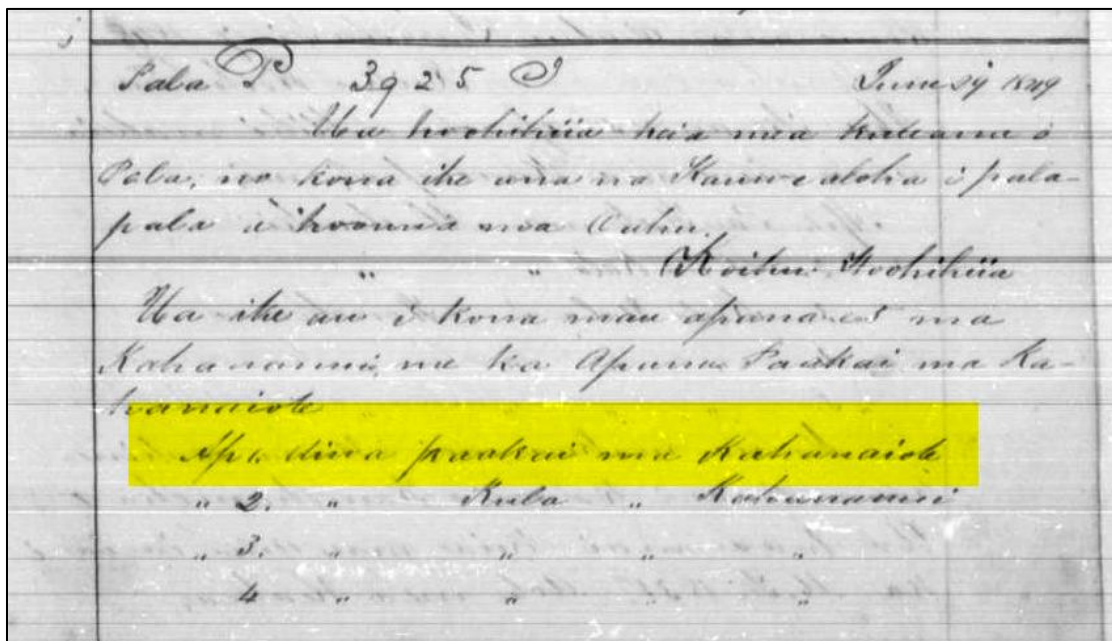 Pala P 3925 I June 29 1849
Ua hoohikiia keia mea kuleana o
Pala, no kona ike ana na Kauwealoha i pala-
pala a hoouna ma Oahu.
" Koihu. Hoohikiia
Ua ike au i kona mau apana ma
Kahananui, me ka Apana Paakai ma Ka-
hanaiote
Ap 1. Aina paakai ma Kahanaiote
" 2. " Kula " Kahananui
" 3. " " " "
4 " " " "